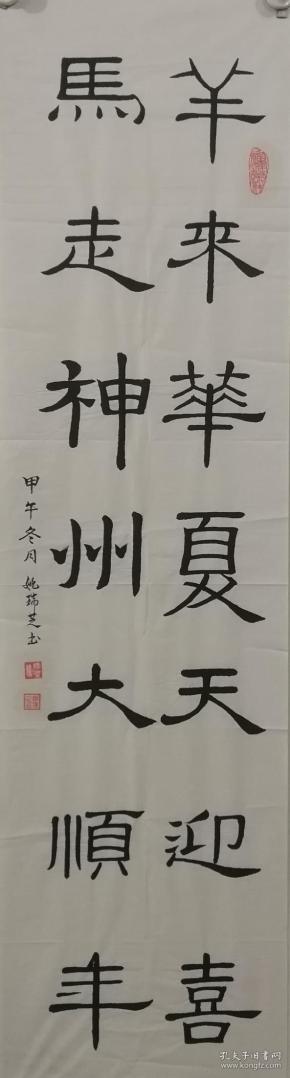 羊来華夏天迎喜
馬走神州大順年
甲午冬月姚瑞芝书
孔夫子旧书网
www.kongfz.com